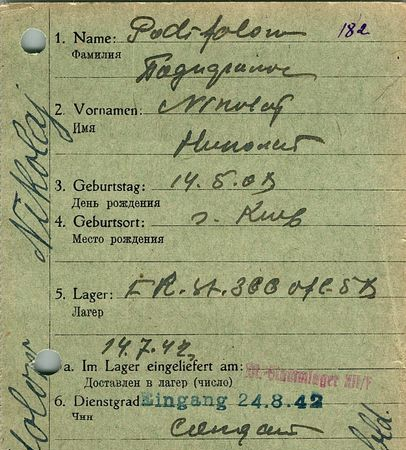 1. Name:
182
Фамилия
2. Vornamen: Nikolaj
Имя
Николай
3. Geburtstag: 14.5.03
День рождения
4. Geburtsort: г. Киев
Место рождения
5. Lager:
Лагер
14.7.42
a. Im Lager eingeliefert am:
Доставлен в лагер (число)
6. Dienstgrad: Eingang 24.8.42
Чин
Nikolaj